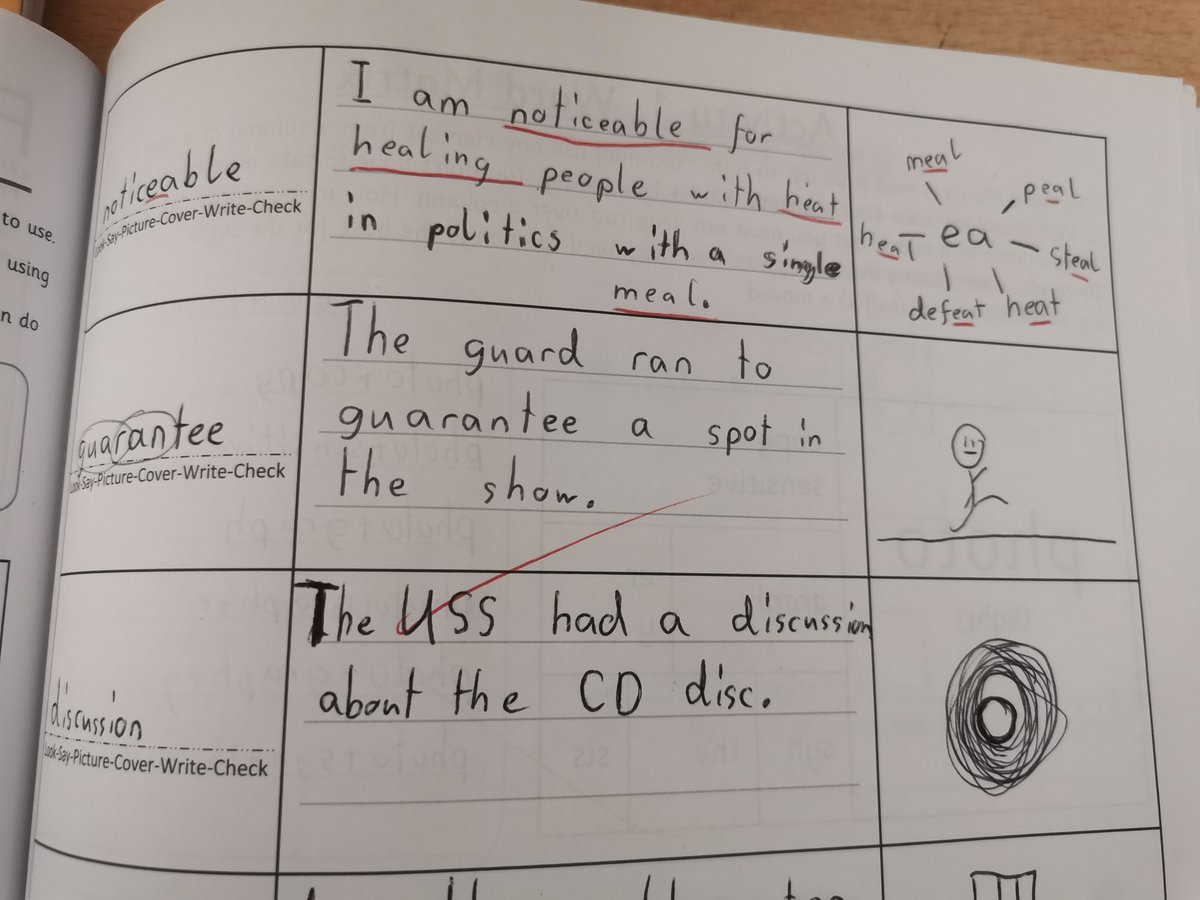 to use.
using
n do
noticeable
Look-Say-Picture-Cover-Write-Check
I am noticeable for
healing people with heat
in politics with a single
meal.
meal
peal
heat ea steal
defeat heat
guarantee
Look-Say-Picture-Cover-Write-Check
The guard ran to
guarantee a spot in
the show.
discussion
Look-Say-Picture-Cover-Write-Check
The USS had a discussion
about the CD disc.